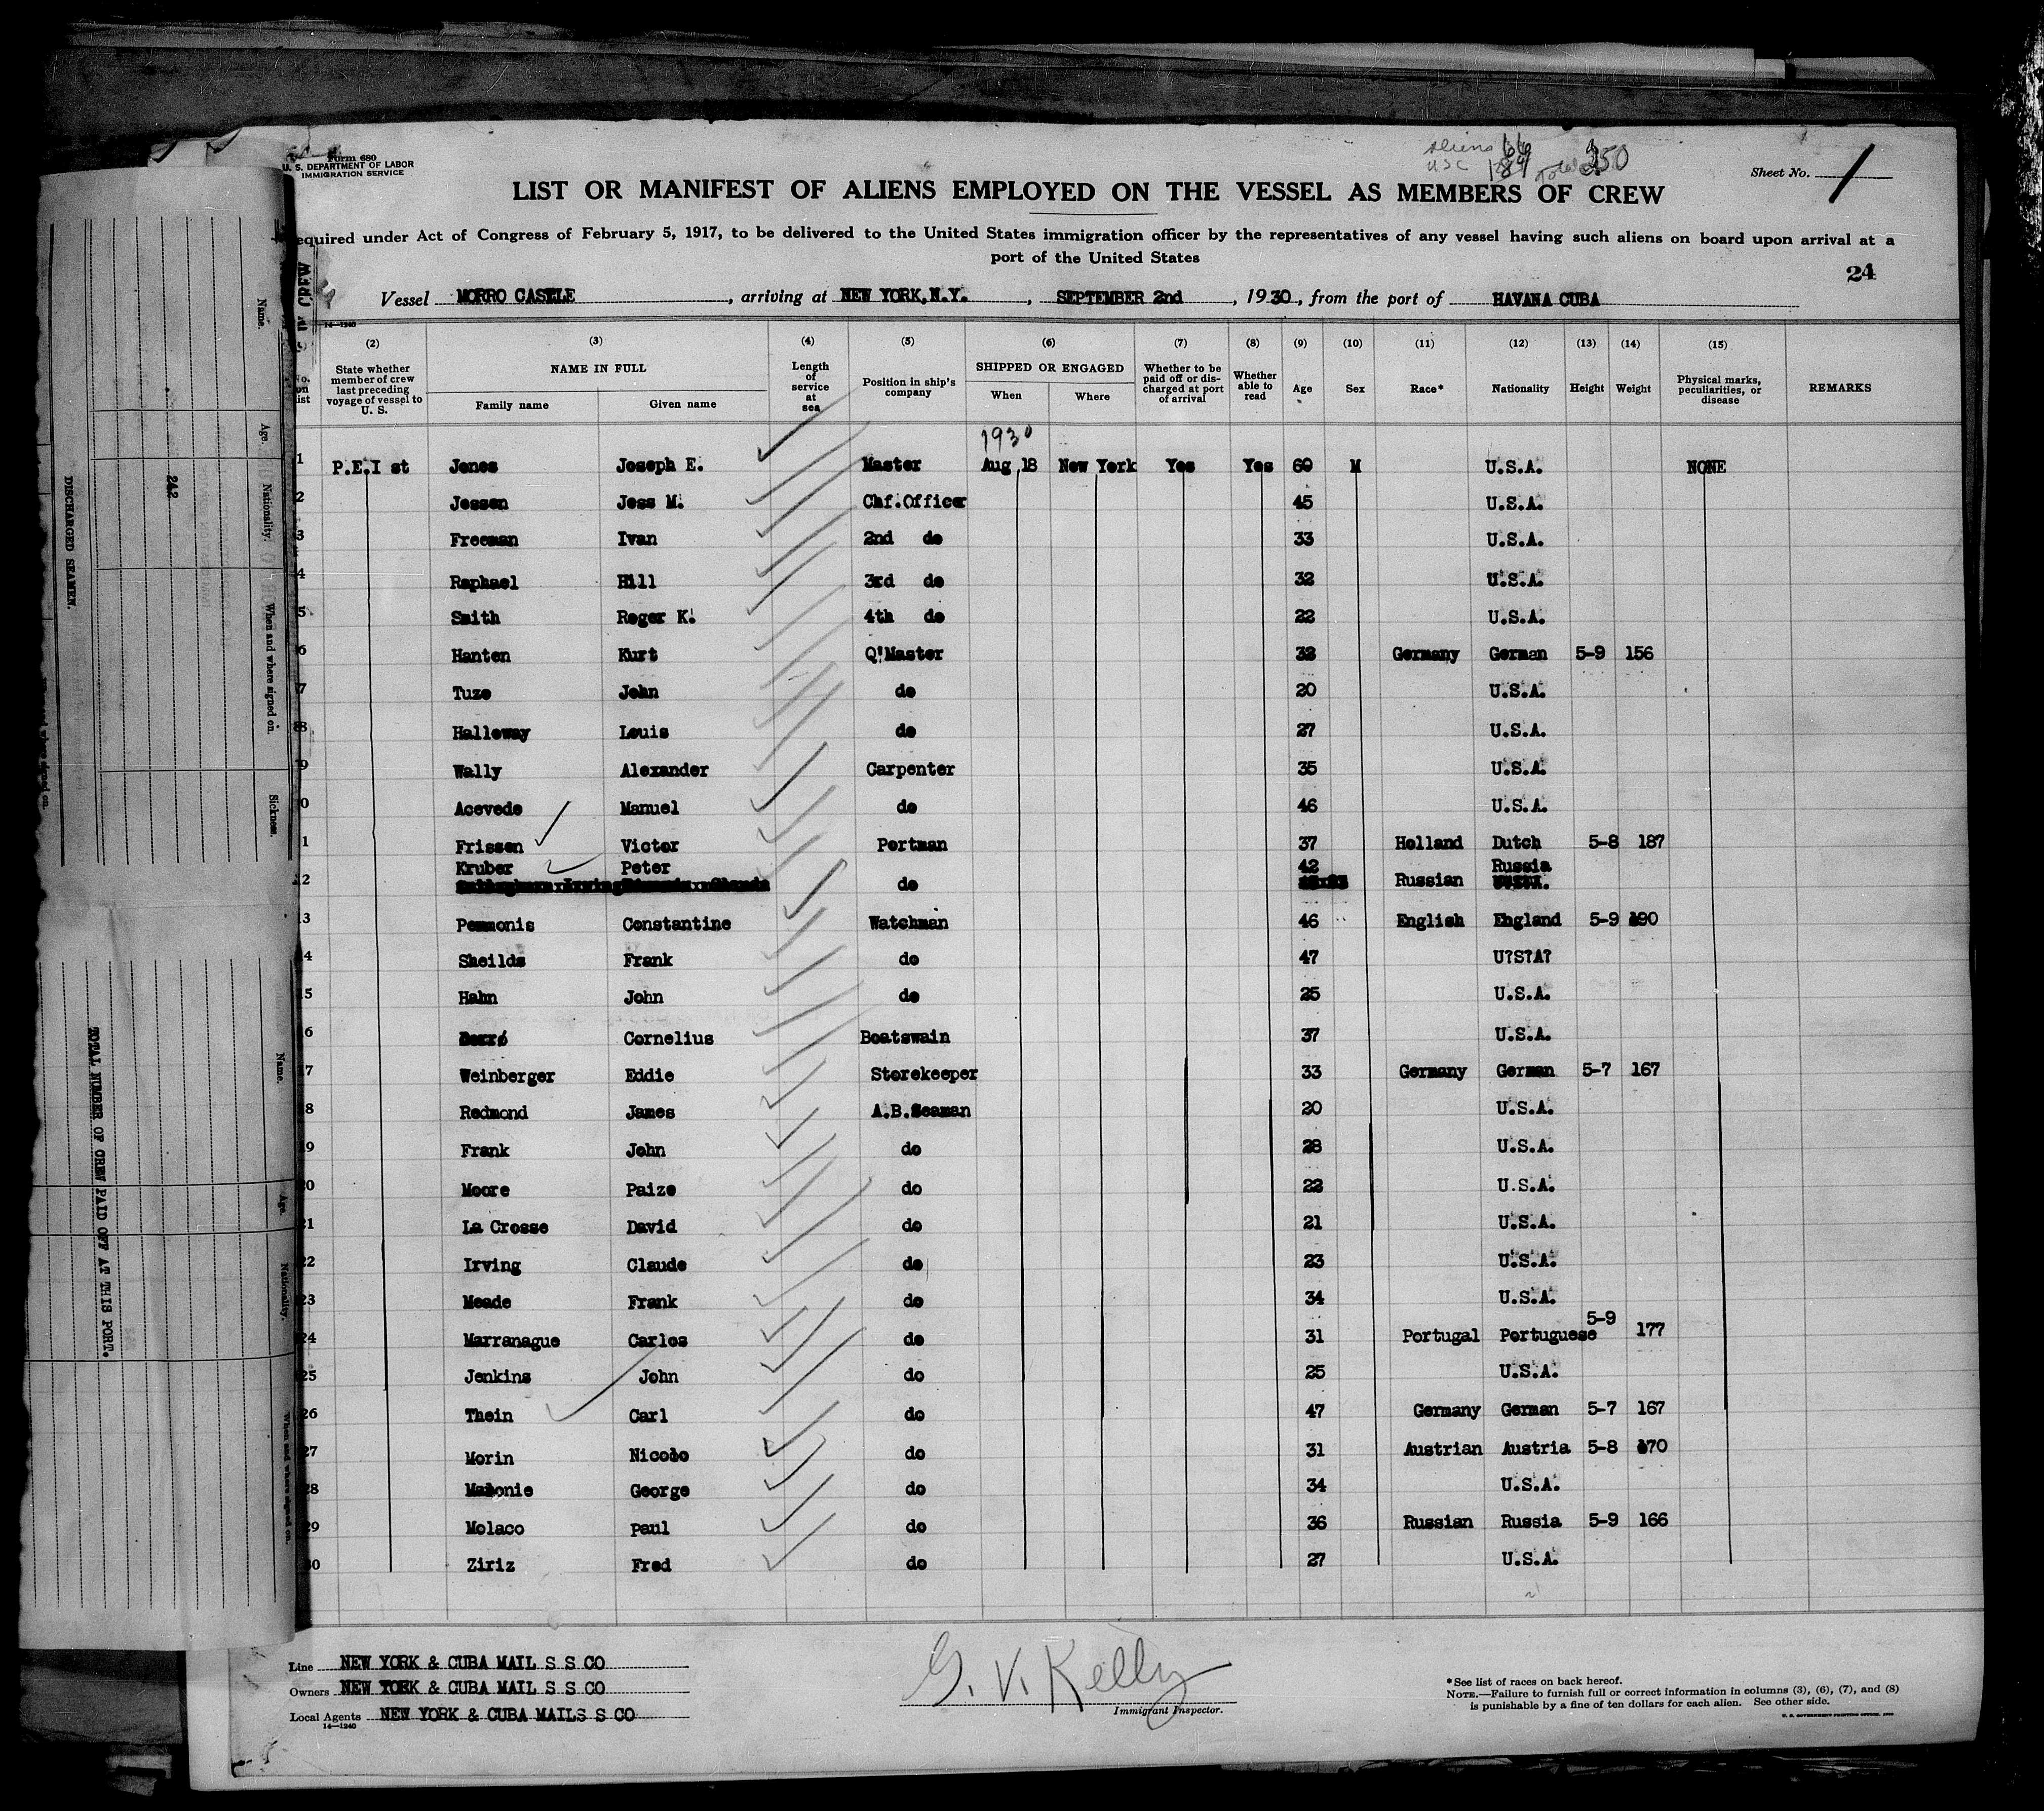 Form 680
U. S. DEPARTMENT OF LABOR
IMMIGRATION SERVICE
aliens 66
USC 184 Total 250
Sheet No. 1
LIST OR MANIFEST OF ALIENS EMPLOYED ON THE VESSEL AS MEMBERS OF CREW
equired under Act of Congress of February 5, 1917, to be delivered to the United States immigration officer by the representatives of any vessel having such aliens on board upon arrival at a
port of the United States
24
Vessel MORRO CASTLE, arriving at NEW YORK, N.Y., SEPTEMBER 2nd, 1930, from the port of HAVANA CUBA
14—1240
(2) (3) (4) (5) (6) (7) (8) (9) (10) (11) (12) (13) (14) (15)
No. on list
State whether member of crew last preceding voyage of vessel to U. S.
NAME IN FULL
Family name Given name
Length of service at sea
Position in ship's company
SHIPPED OR ENGAGED
When Where
Whether to be paid off or discharged at port of arrival
Whether able to read
Age Sex Race* Nationality Height Weight
Physical marks, peculiarities, or disease
REMARKS
1930
1 P.E.I st Jones Joseph E. Master Aug 18 New York Yes Yes 60 M U.S.A. NONE
2 Jessen Jess M. Chf.Officer 45 U.S.A.
3 Freeman Ivan 2nd do 33 U.S.A.
4 Raphael Hill 3rd do 32 U.S.A.
5 Smith Roger K. 4th do 22 U.S.A.
6 Hanten Kurt Q'Master 32 Germany German 5-9 156
7 Tuze John do 20 U.S.A.
8 Halloway Louis do 27 U.S.A.
9 Wally Alexander Carpenter 35 U.S.A.
0 Acevedo Manuel do 46 U.S.A.
1 Frissen Victor Portman 37 Holland Dutch 5-8 187
Kruber Peter 42 Russia
2 do Russian
3 Pemmonis Constantine Watchman 46 English England 5-9 190
4 Sheilds Frank do 47 U?S?A?
5 Hahn John do 25 U.S.A.
6 Cornelius Boatswain 37 U.S.A.
7 Weinberger Eddie Storekeeper 33 Germany German 5-7 167
8 Redmond James A.B.Seaman 20 U.S.A.
19 Frank John do 28 U.S.A.
20 Moore Paize do 22 U.S.A.
21 La Crosse David do 21 U.S.A.
22 Irving Claude do 23 U.S.A.
23 Meade Frank do 34 U.S.A.
24 Marranague Carlos do 31 Portugal Portuguese 5-9 177
25 Jenkins John do 25 U.S.A.
26 Thein Carl do 47 Germany German 5-7 167
27 Morin Nicolo do 31 Austrian Austria 5-8 170
28 George do 34 U.S.A.
29 Molaco paul do 36 Russian Russia 5-9 166
30 Ziriz Fred do 27 U.S.A.
Line NEW YORK & CUBA MAIL S S CO
Owners NEW YORK & CUBA MAIL S S CO
Local Agents NEW YORK & CUBA MAILS S CO
14—1240
G. V. Kelly
Immigrant Inspector.
*See list of races on back hereof.
NOTE.—Failure to furnish full or correct information in columns (3), (6), (7), and (8)
is punishable by a fine of ten dollars for each alien. See other side.
U. S. GOVERNMENT PRINTING OFFICE
CREW
Name.
Age.
Nationality.
When and where signed on.
Sickness.
242
DISCHARGED SEAMEN.
Name.
Age.
Nationality.
When and where signed on.
TOTAL NUMBER OF CREW PAID OFF AT THIS PORT.